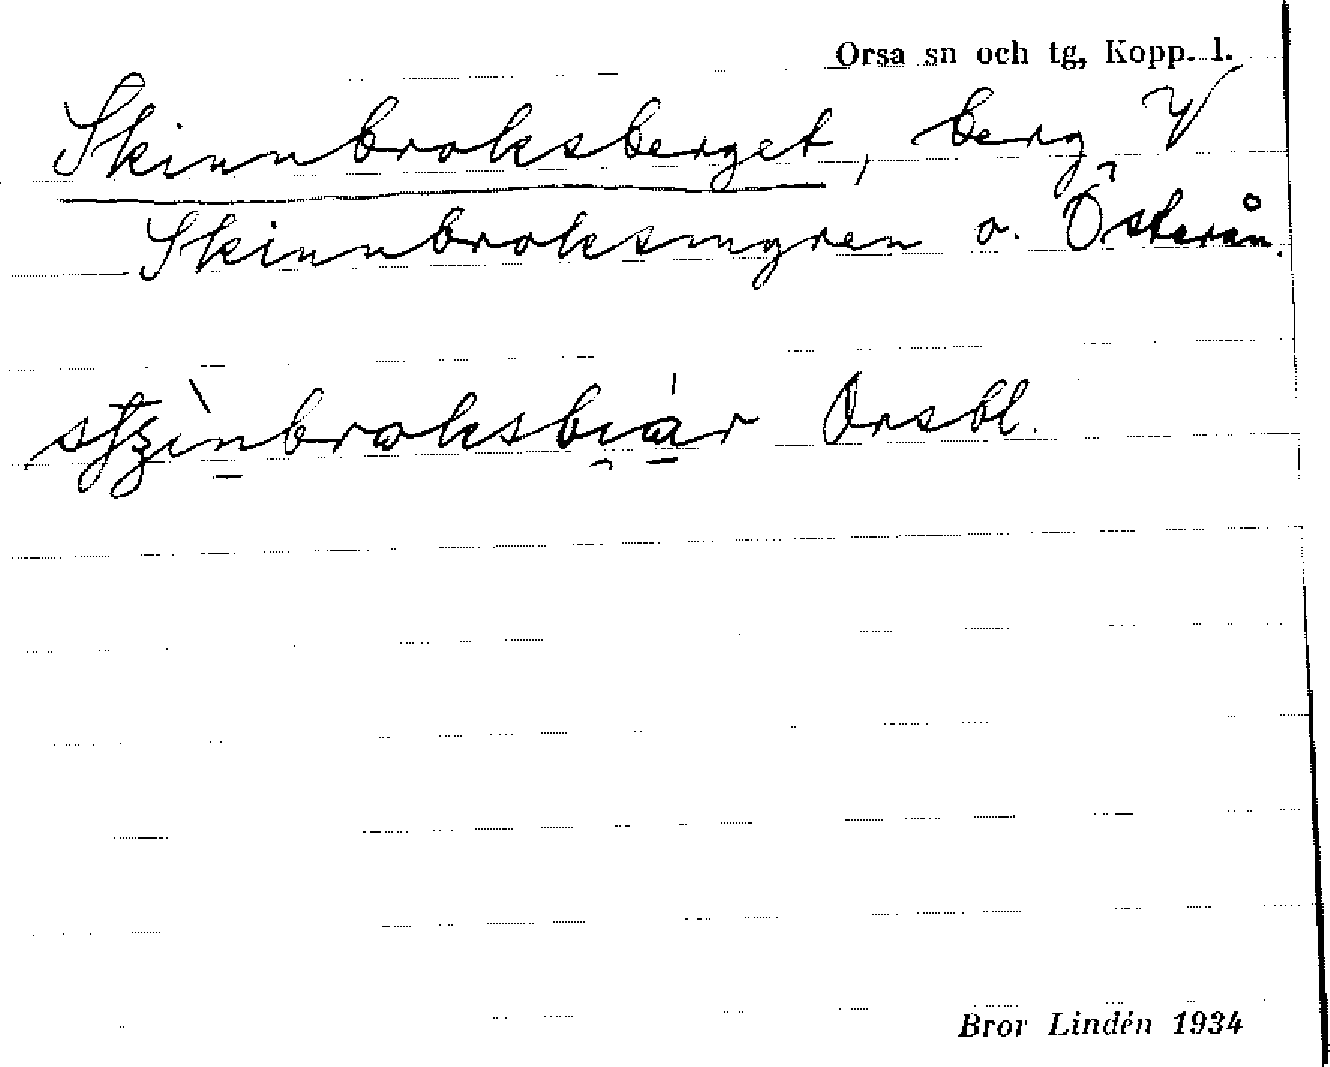 Orsa sn och tg, Kopp. l.
Skinnbroksberget, berg V
Skinnbroksmyren o. Österån.
Orsbl.
Bror Lindén 1934